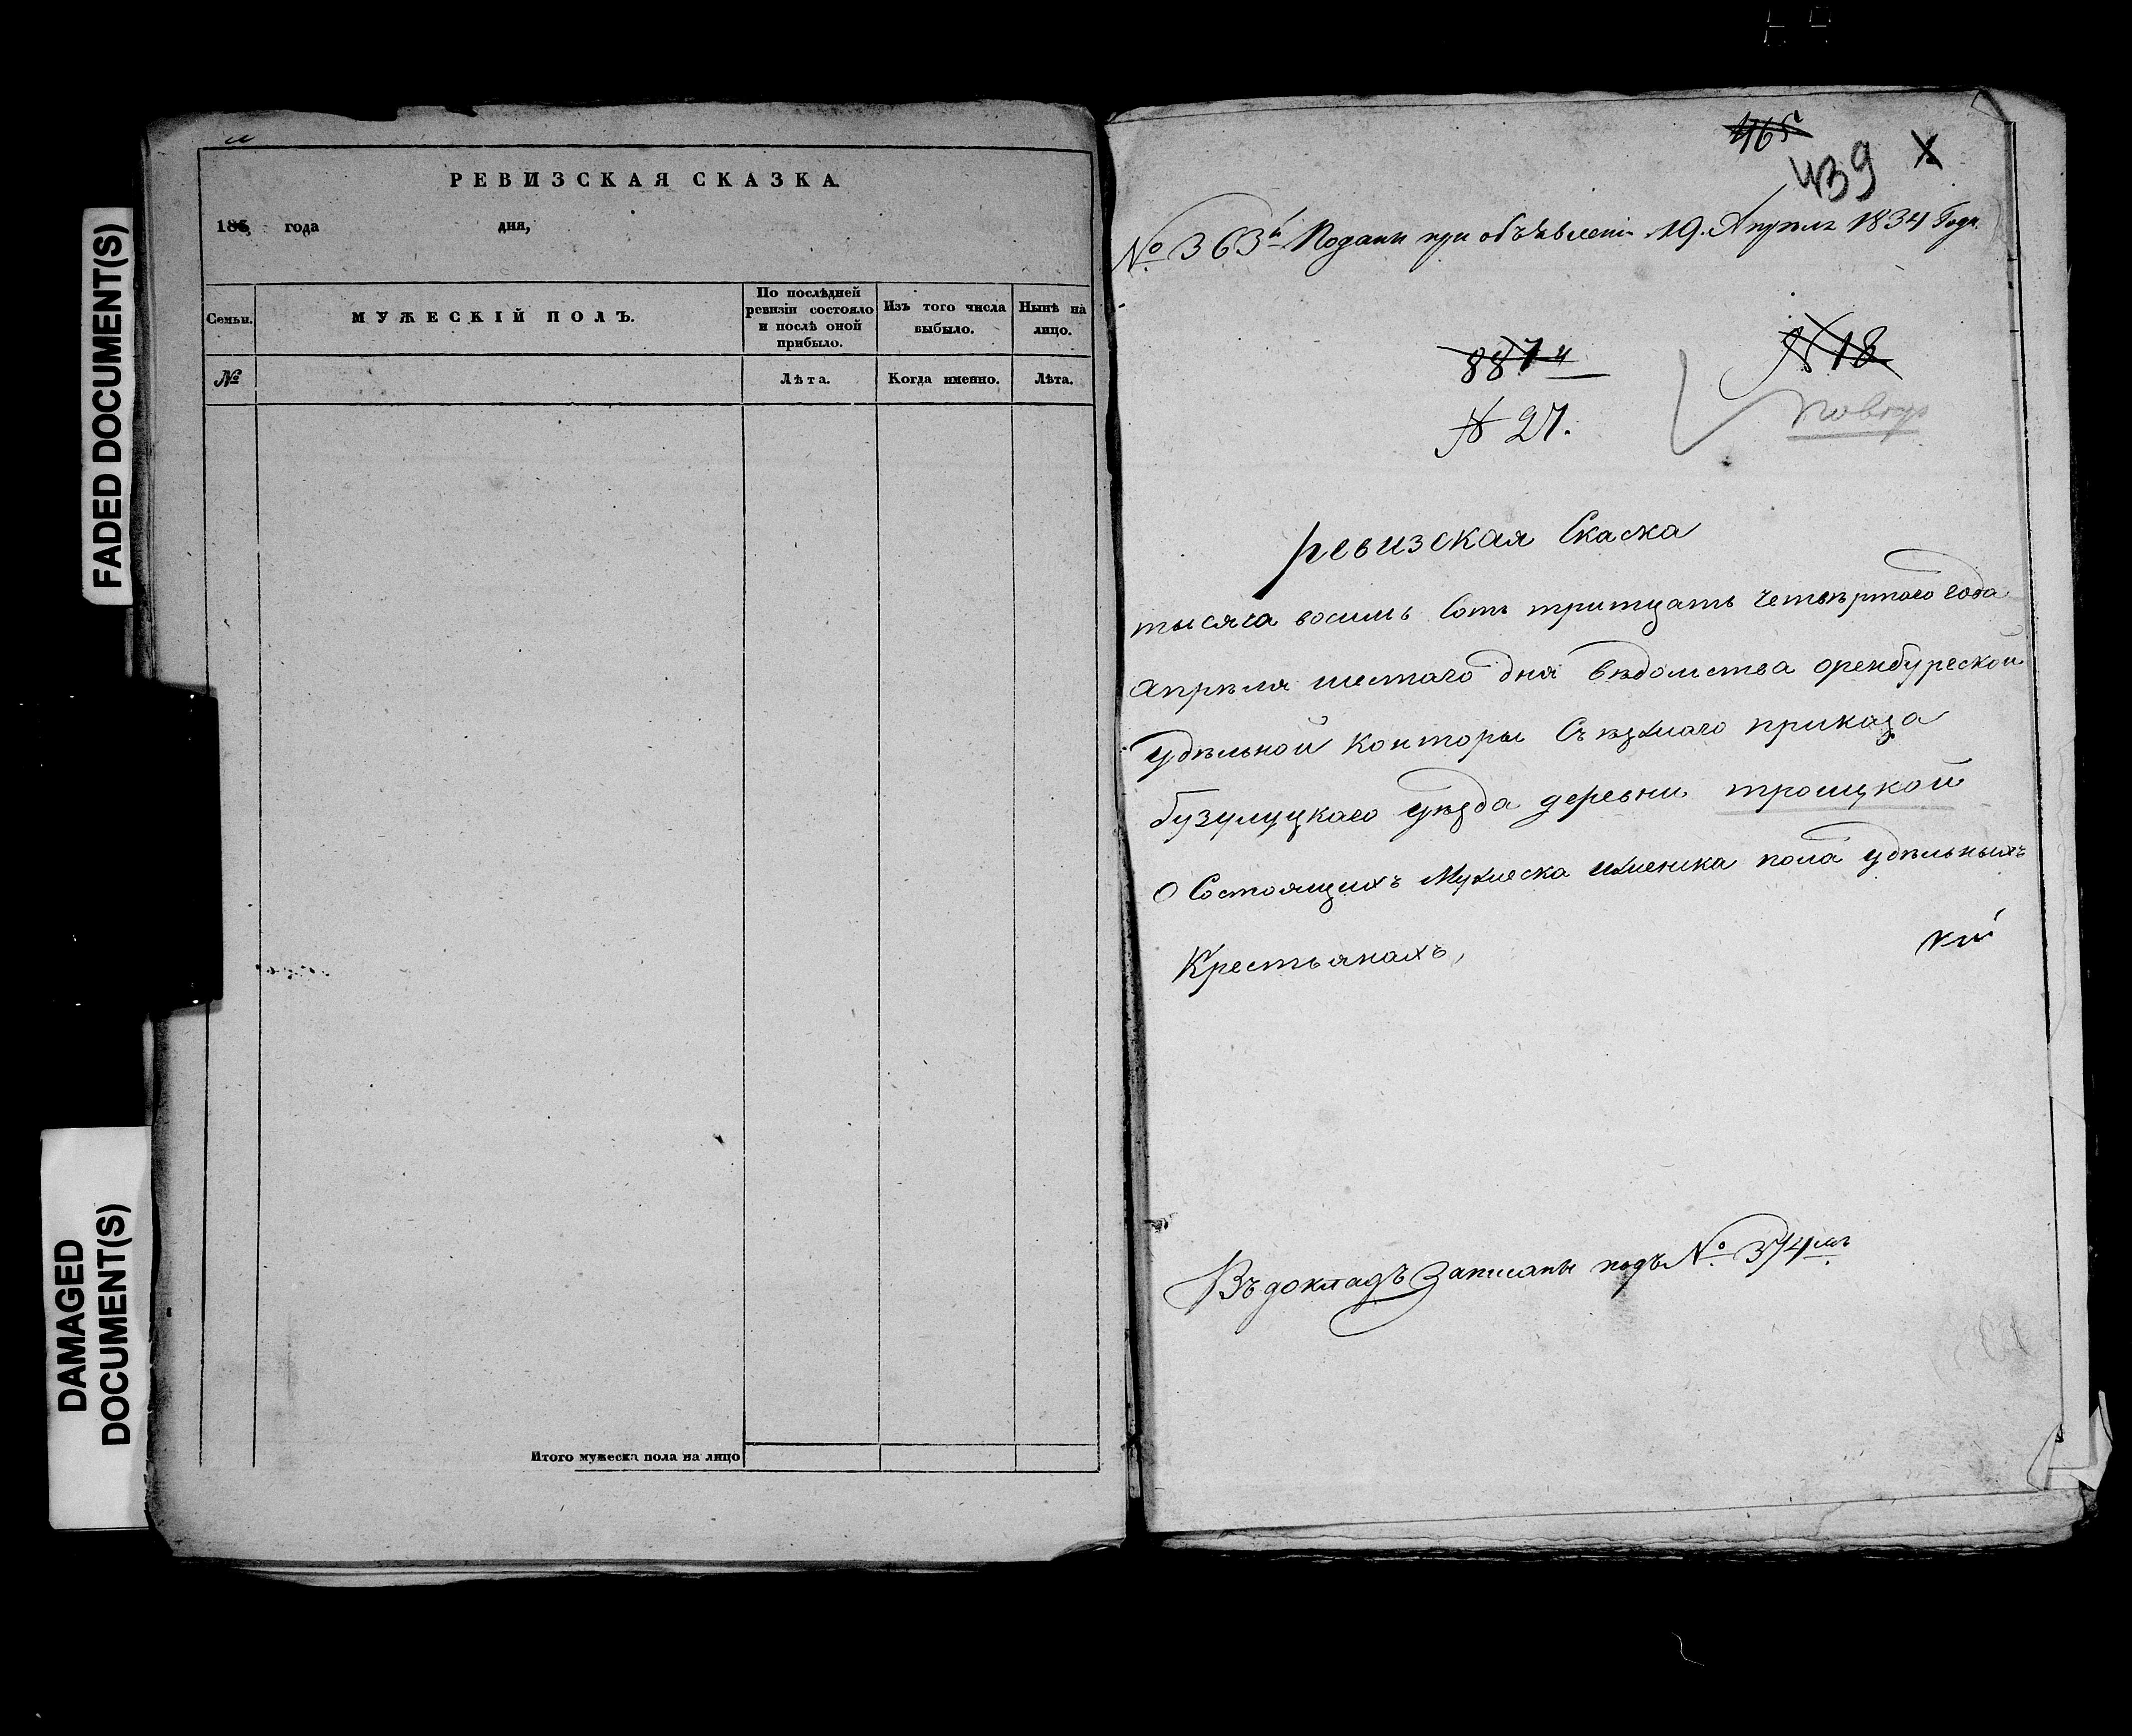 FADED DOCUMENT(S)
DAMAGED
DOCUMENT(S)
РЕВИЗСКАЯ СКАЗКА.
185 года дня,
Семьи.
МУЖЕСКІЙ ПОЛЪ.
По послѣдней
ревизіи состояло
и послѣ оной
прибыло.
Изъ того числа
выбыло.
Нынѣ на
лицо.
№
Лѣта.
Когда именно.
Лѣта.
Итого мужеска пола на лицо
465
439
№ 363й Подана при объявленіи 19. Апрѣля 1834 Года.
887й
№ 18
№ 27.
ревизская Скаска
тысяча восимь Сотъ тритцать четвѣртаго года
апрѣля шестаго дня вѣдомства оренбургской
удѣльной конторы Съѣзжаго приказа
бузулуцкаго уѣзда деревни троицкой
О Состоящихъ Мужеска иженска пола удѣльныхъ
Крестьянахъ,
Въ докладъ Записаны подъ № 374мъ